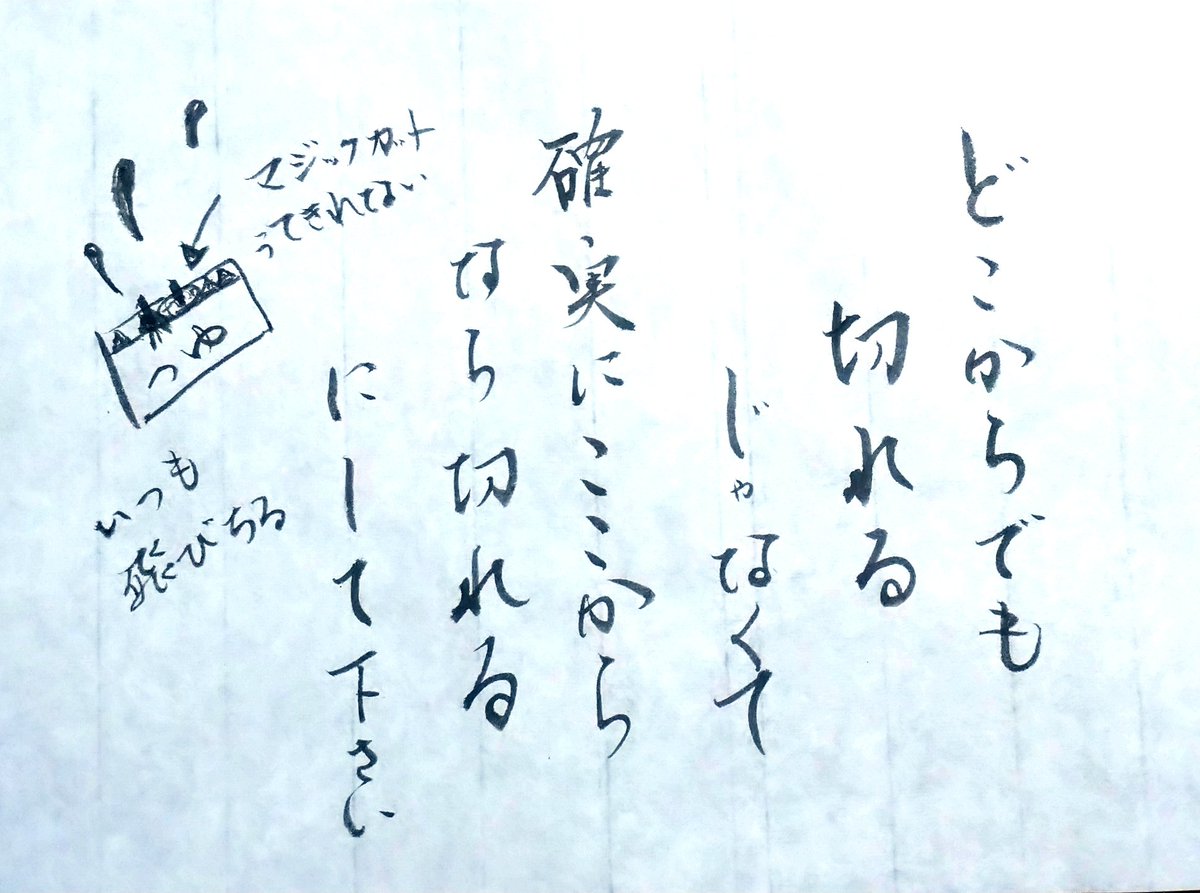 どこからでも
切れる
じゃなくて
確実にここから
なら切れる
にして下さい
マジックカット
ってきれてない
つゆ
いつも
飛びちる